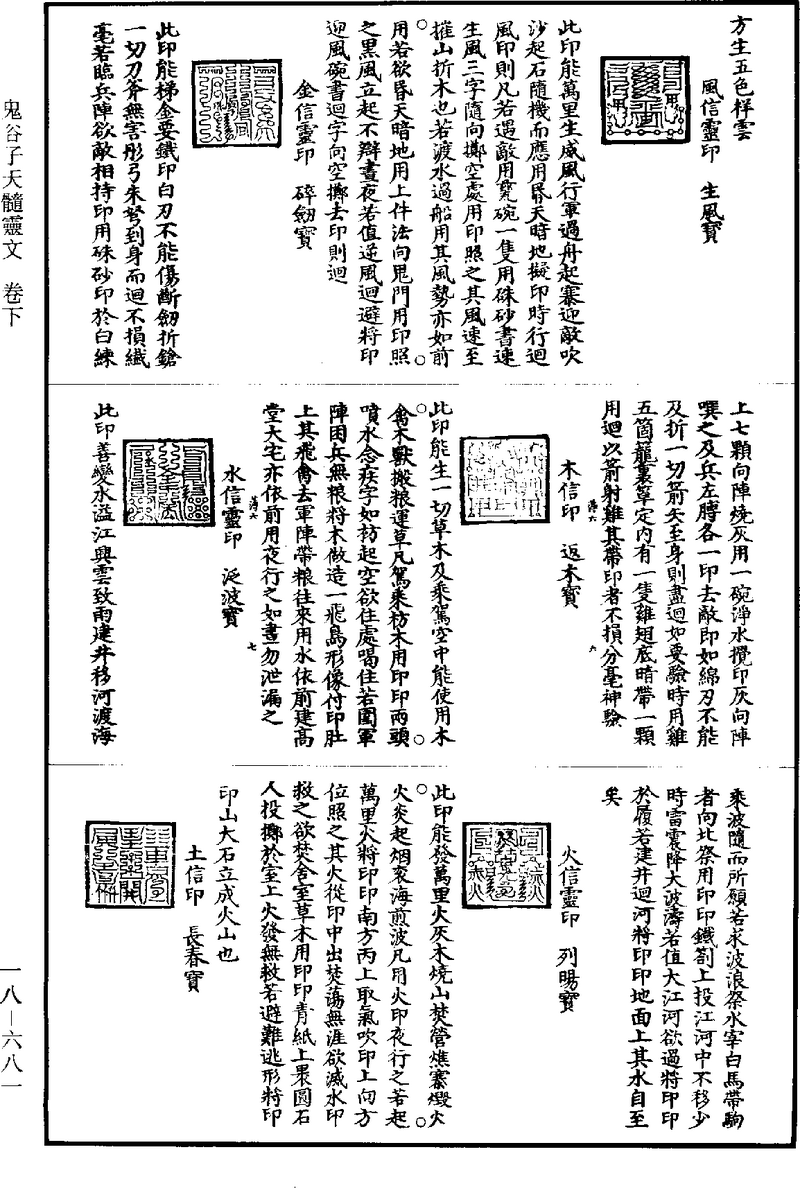 方生五色样雲
風信靈印　生風寳
此印能萬里生威風行軍過舟起寨迎敵吹
沙起石隨機而應用昏天暗地擬印時行迴
風印則凡若遇敵用甆碗一隻用硃砂書速
生風三字隨向擲空處用印照之其風速至
摧山折木也若渡水過船用其風勢亦如前
用若欲昏天暗地用上件法向鬼門用印照
之黑風立起不辯晝夜若值逆風迴避將印
迎風碗書迴字向空擲去印則迴
金信靈印　碎劒寳
此印能梯金要鐵印白刃不能傷斷劒折鎗
一切刀斧無害彤弓朱弩到身而迴不損纖
毫若臨兵陣欲敵相持印用硃砂印於白練
上七顆向陣燒灰用一碗淨水攪印灰向陣
噀之及兵左膊各一印去敵即如綿刃不能
及折一切箭矢至身則盡迴如要驗時用雞
五箇籠裏草定內有一隻雞翅底暗帶一顆
用迴以箭射雞其帶印者不損分毫神驗
木信印　返木寳
此印能生一切草木及乘駕空中能使用木
禽木獸搬粮運草凡駕乘枋木用印印兩頭
噴水念疾字如枋起空欲住處喝住若圍軍
陣困兵無粮將木做造一飛鳥形像付印肚
上其飛禽去軍陣帶粮往來用水依前建高
堂大宅亦依前用夜行之如晝勿泄漏之
水信靈印　泛波寳
此印善變水溢江興雲致雨建井移河渡海
乘波隨而所願若求波浪祭水宰白馬帶駒
者向北祭用印印鐵劄上投江河中不移少
時雷震降大波濤若值大江河欲過將印印
於履若建井迴河將印印地面上其水自至
矣
火信靈印　列暘寳
此印能發萬里火灰木燒山焚管燋寨燬火
火炎起烟衮海煎波凡用火印夜行之若起
萬里火將印印南方丙上取氣吹印上向方
位照之其火從印中出焚蕩無涯欲滅水印
救之欲焚舍室草木用印印青紙上褁圓石
人投擲於室上火發無救若避難逃形將印
印山大石立成火山也
土信印　長春寳
鬼谷子天髓靈文　卷下
一八—六八一